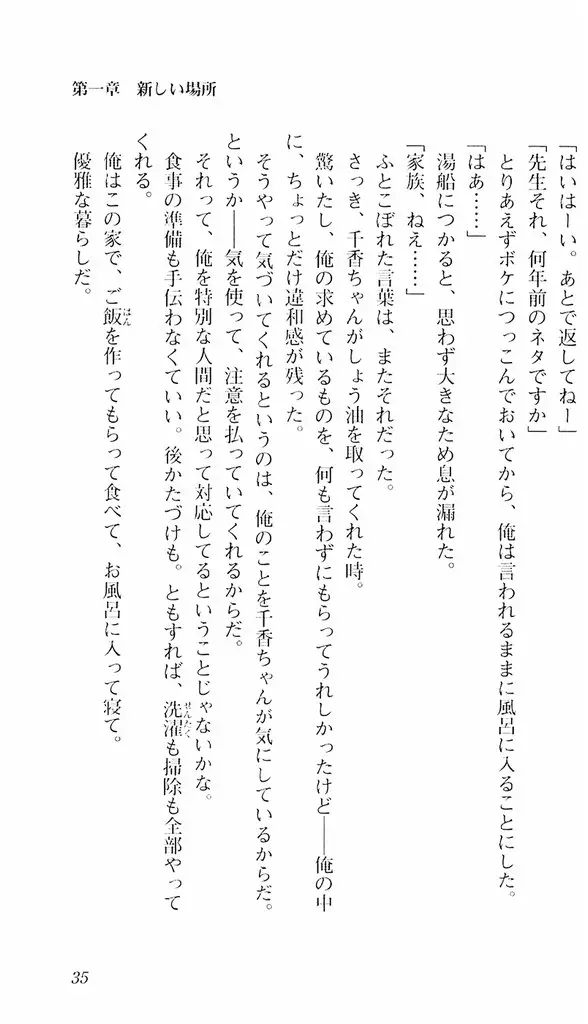 第一章　新しい場所
「はいはーい。あとで返してねー」
「先生それ、何年前のネタですか」
とりあえずボケにつっこんでおいてから、俺は言われるままに風呂に入ることにした。
「はぁ……」
湯船につかると、思わず大きなため息が漏れた。
「家族、ねえ……」
ふとこぼれた言葉は、またそれだった。
さっき、千香ちゃんがしょう油を取ってくれた時。
驚いたし、俺の求めているものを、何も言わずにもらってうれしかったけど――俺の中
に、ちょっとだけ違和感が残った。
そうやって気づいてくれるというのは、俺のことを千香ちゃんが気にしているからだ。
というか――気を使って、注意を払っていてくれるからだ。
それって、俺を特別な人間だと思って対応してるということじゃないかな。
食事の準備も手伝わなくていい。後かたづけも。ともすれば、洗濯も掃除も全部やって
くれる。
俺はこの家で、ご飯を作ってもらって食べて、お風呂に入って寝て。
優雅な暮らしだ。
35